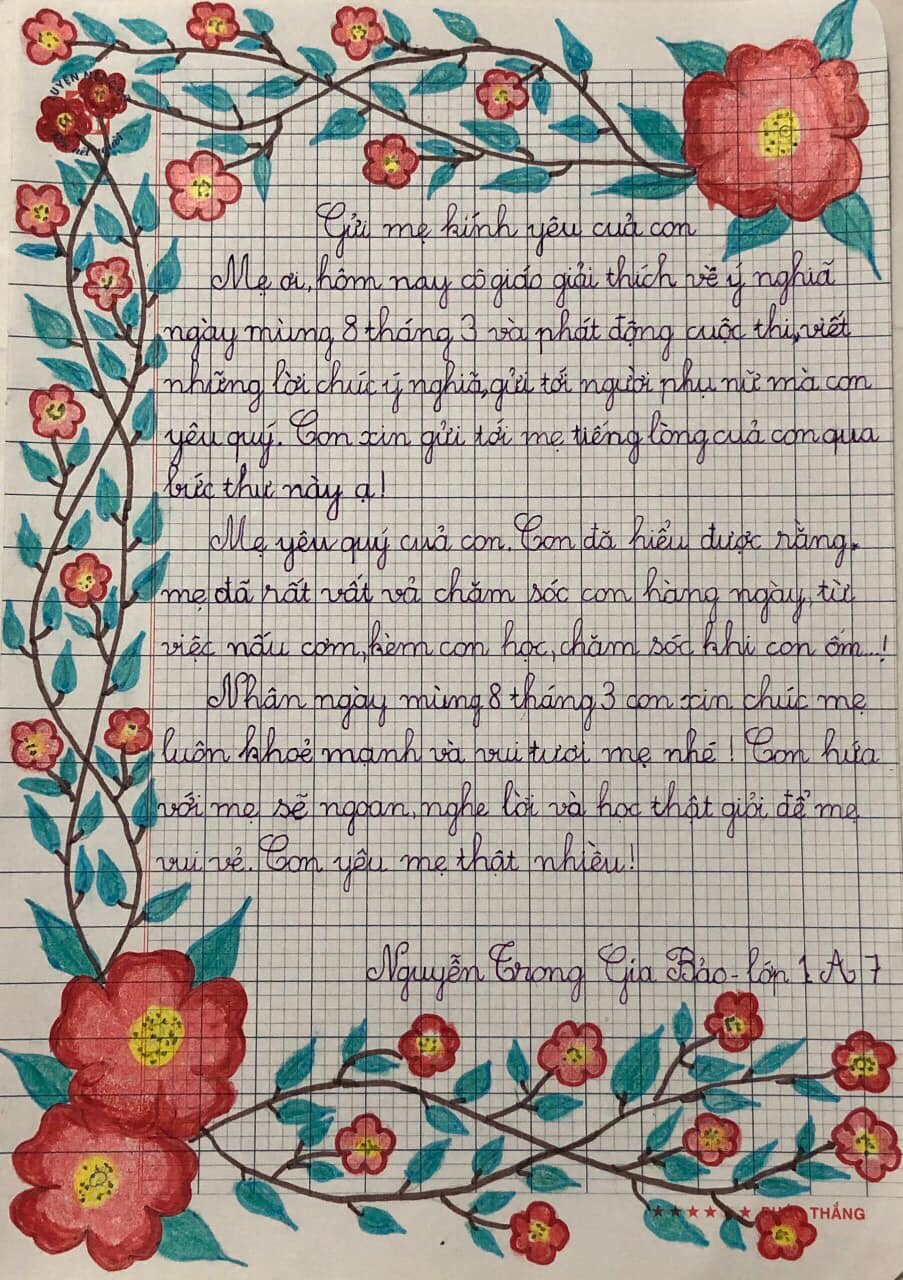 Gửi mẹ kính yêu cuả con
Mẹ ơi, hôm nay cô giáo giải thích về ý nghiã
ngày mùng 8 tháng 3 và phát động cuộc thi, viết
những lời chúc ý nghiã, gửi tới người phụ nữ mà con
yêu quý. Con xin gửi tới mẹ tiếng lòng cuả con qua
bức thư này ạ!
Mẹ yêu quý cuả con. Con đã hiểu được rằng,
mẹ đã rất vất vả chăm sóc con hàng ngày, từ
việc nấu cơm, kèm con học, chăm sóc khi con ốm...!
Nhân ngày mùng 8 tháng 3 con xin chúc mẹ
luôn khoẻ mạnh và vui tươi mẹ nhé! Con hứa
với mẹ sẽ ngoan, nghe lời và học thật giỏi để mẹ
vui vẻ. Con yêu mẹ thật nhiều!
Nguyễn Trọng Gia Bảo - lớp 1 A 7
THẮNG